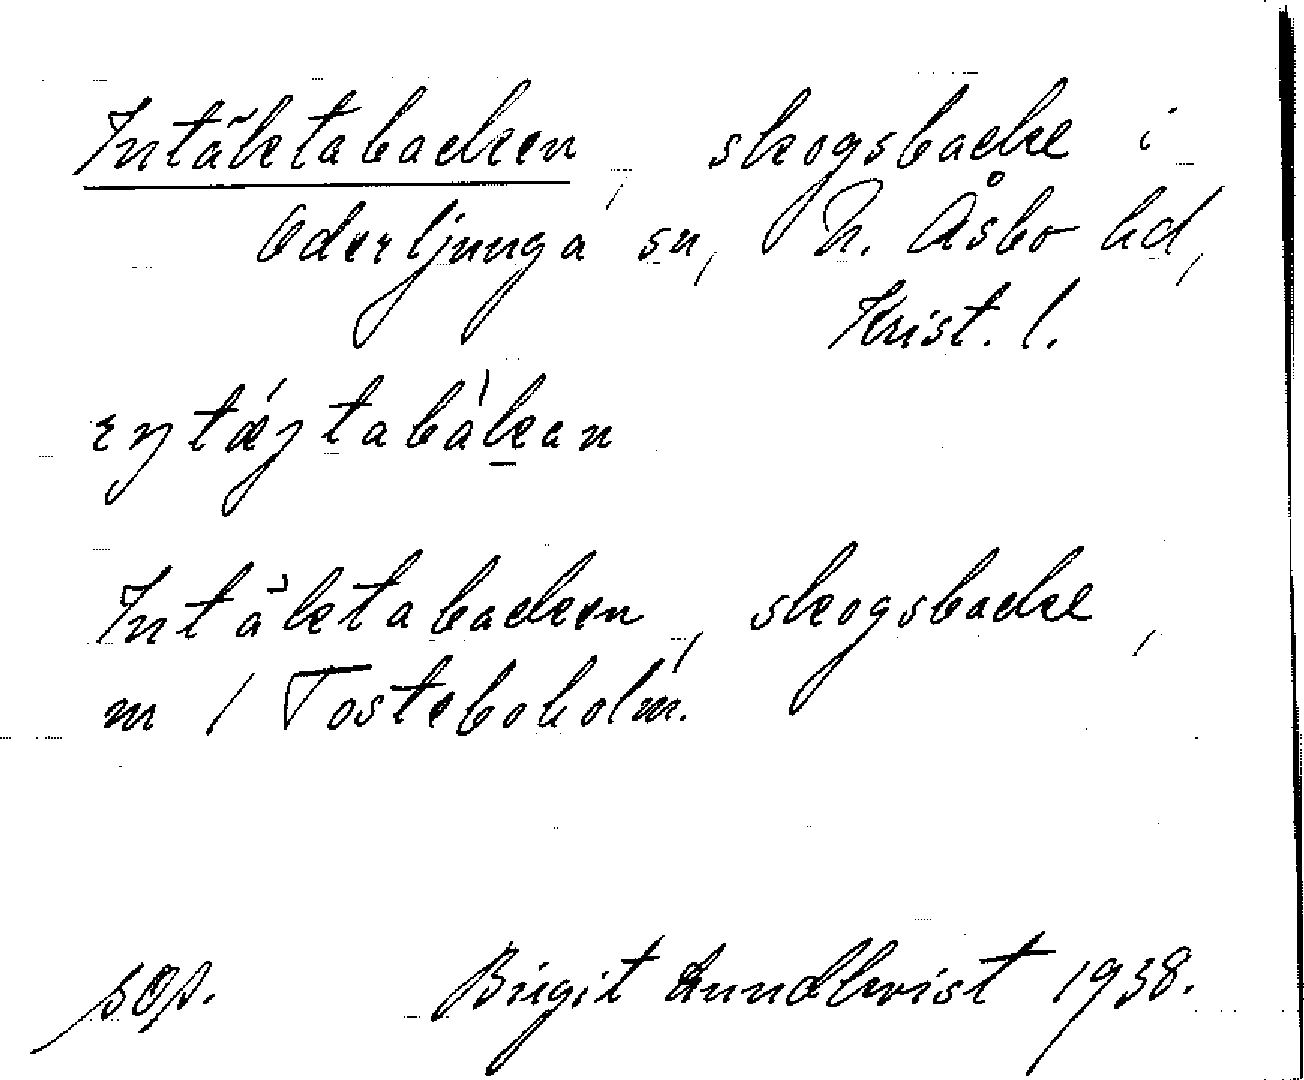 Intäktabacken, skogsbacke i
Oderljunga sn, N. Åsbo hd,
Krist. l.
Intäktabacken, skogsbacke,
m / Tosteboholm.
Birgit Lundkvist 1938.